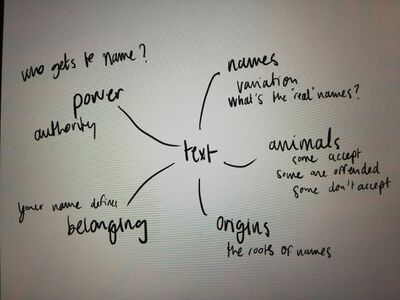 who gets to name?
power
authority
names
variation
what's the 'real' names?
text
animals
some accept
some are offended
some don't accept
your name defines
belonging
origins
the roots of names